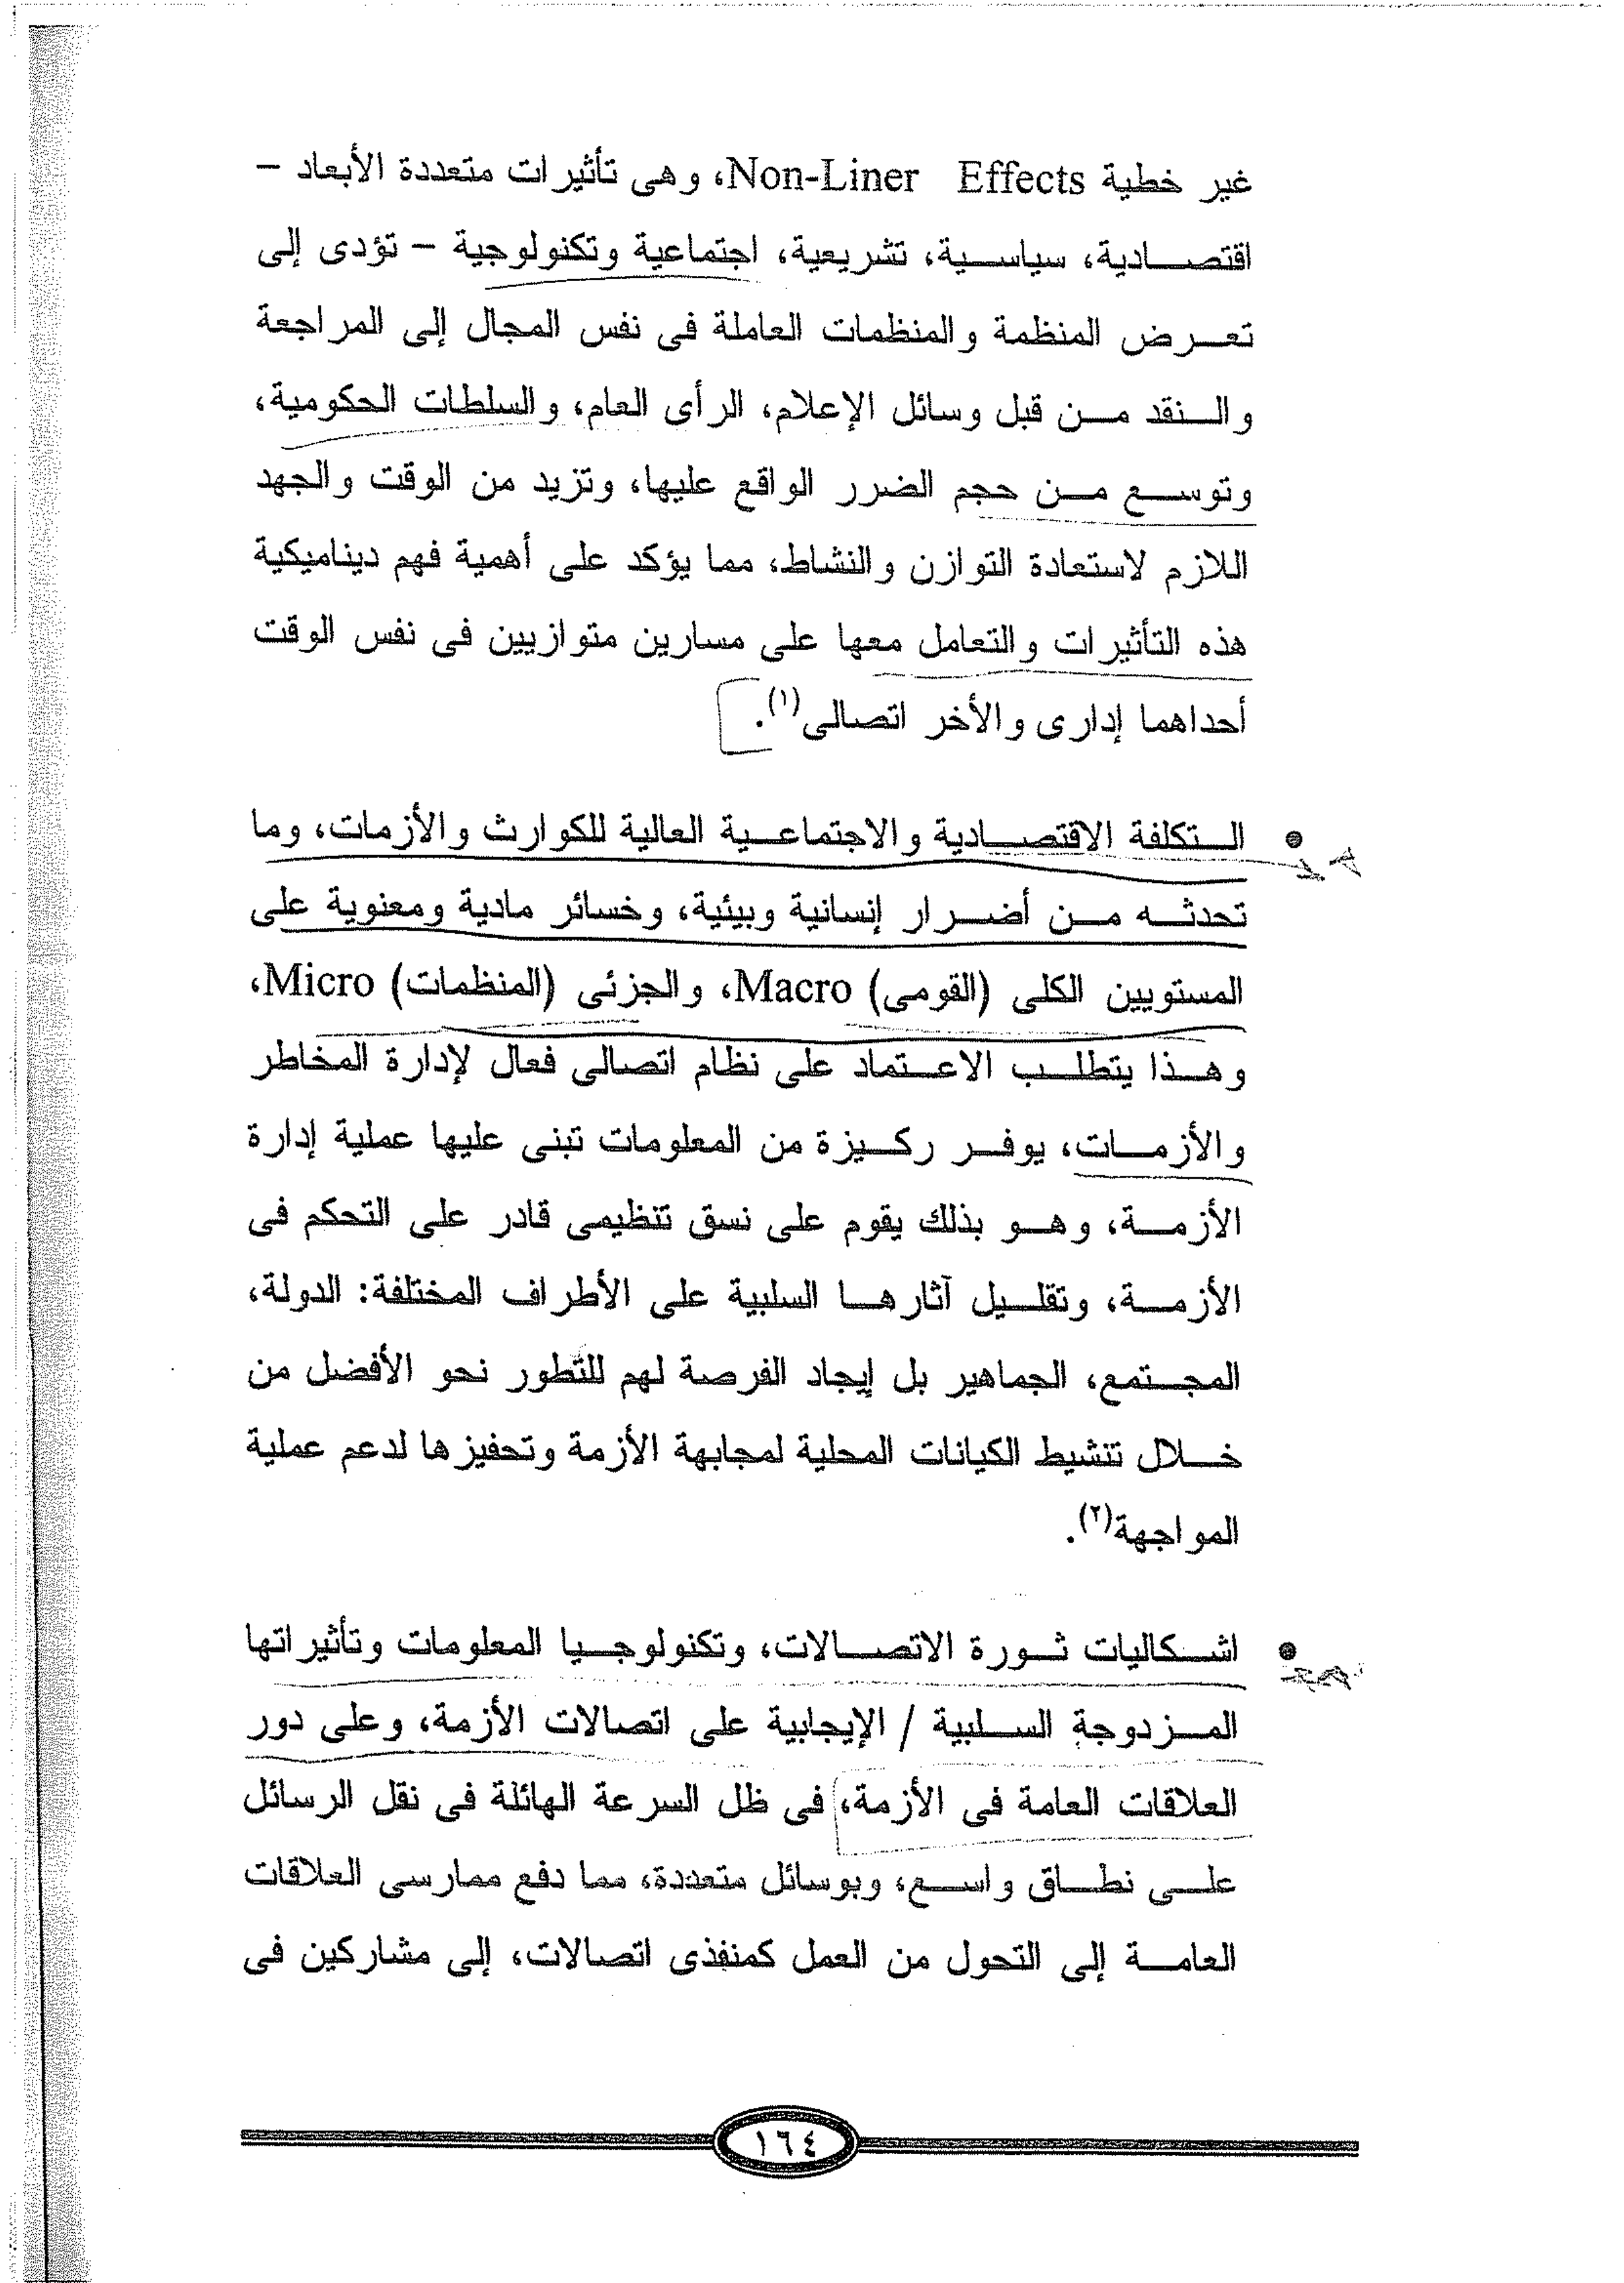 غير خطية Non-Liner Effects، وهى تأثيرات متعددة الأبعاد –
اقتصادية، سياسية، تشريعية، اجتماعية وتكنولوجية – تؤدى إلى
تعرض المنظمة والمنظمات العاملة فى نفس المجال إلى المراجعة
والنقد من قبل وسائل الإعلام، الرأى العام، والسلطات الحكومية،
وتوسع من حجم الضرر الواقع عليها، وتزيد من الوقت والجهد
اللازم لاستعادة التوازن والنشاط، مما يؤكد على أهمية فهم ديناميكية
هذه التأثيرات والتعامل معها على مسارين متوازيين فى نفس الوقت
أحداهما إدارى والأخر اتصالى(١).
• التكلفة الاقتصادية والاجتماعية العالية للكوارث والأزمات، وما
تحدثه من أضرار إنسانية وبيئية، وخسائر مادية ومعنوية على
المستويين الكلى (القومى) Macro، والجزئى (المنظمات) Micro،
وهذا يتطلب الاعتماد على نظام اتصالى فعال لإدارة المخاطر
والأزمات، يوفر ركيزة من المعلومات تبنى عليها عملية إدارة
الأزمة، وهو بذلك يقوم على نسق تنظيمى قادر على التحكم فى
الأزمة، وتقليل آثارها السلبية على الأطراف المختلفة: الدولة،
المجتمع، الجماهير بل إيجاد الفرصة لهم للتطور نحو الأفضل من
خلال تنشيط الكيانات المحلية لمجابهة الأزمة وتحفيزها لدعم عملية
المواجهة(٢).
• اشكاليات ثورة الاتصالات، وتكنولوجيا المعلومات وتأثيراتها
المزدوجة السلبية / الإيجابية على اتصالات الأزمة، وعلى دور
العلاقات العامة فى الأزمة، فى ظل السرعة الهائلة فى نقل الرسائل
على نطاق واسع، وبوسائل متعددة، مما دفع ممارسى العلاقات
العامة إلى التحول من العمل كمنفذى اتصالات، إلى مشاركين فى
١٦٤